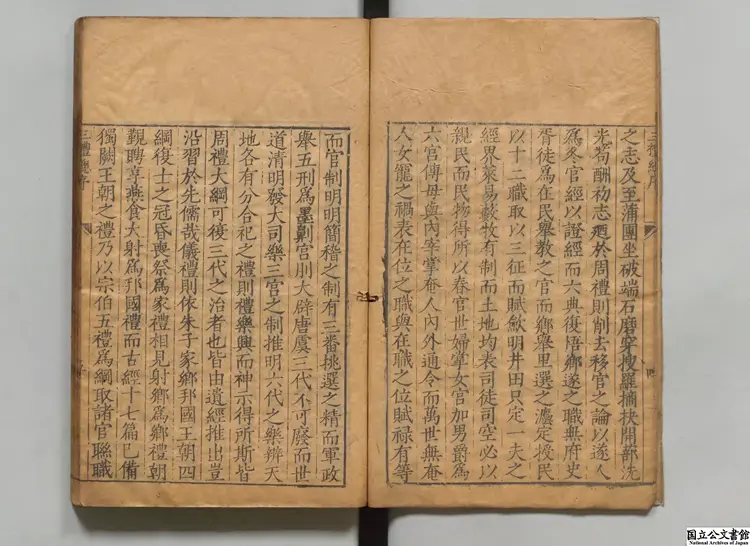 之志及至蒲團坐破端石磨穿搜羅摘抉開蔀洗
光苟酬初志迺於周禮則削去移官之論以遂人
為冬官經以證經而六典復舊鄉遂之職無府史
胥徒為在民舉教之官而鄉舉里選之灋定授民
以十二職取以三征而賦歛明井田只定一夫之
經界萊易藪牧有制而土地均表司徒司空必以
親民而民物得所以春官世婦掌女官加男爵為
六官傳母與內宰掌奄人內外通令而萬世無奄
人女寵之禍表在位之職與在職之位賦祿有等
而官制明明簡稽之制有三番挑選之精而軍政
舉五刑為墨劓宮刖大辟唐虞三代不可廢而世
道清明發大司樂三宮之制推明六代之樂辨天
地各有分合祀之禮則禮樂興而神示得所斯皆
周禮大綱可復三代之治者也皆由遺經推出豈
沿習於先儒哉儀禮則依朱子家鄉邦國王朝四
綱復士之冠昏喪祭為家禮相見射鄉為鄉禮朝
覲聘享燕食大射為邦國禮而古經十七篇已備
獨闕王朝之禮乃以宗伯五禮為綱取諸官聯職
三禮總序
国立公文書館
National Archives of Japan